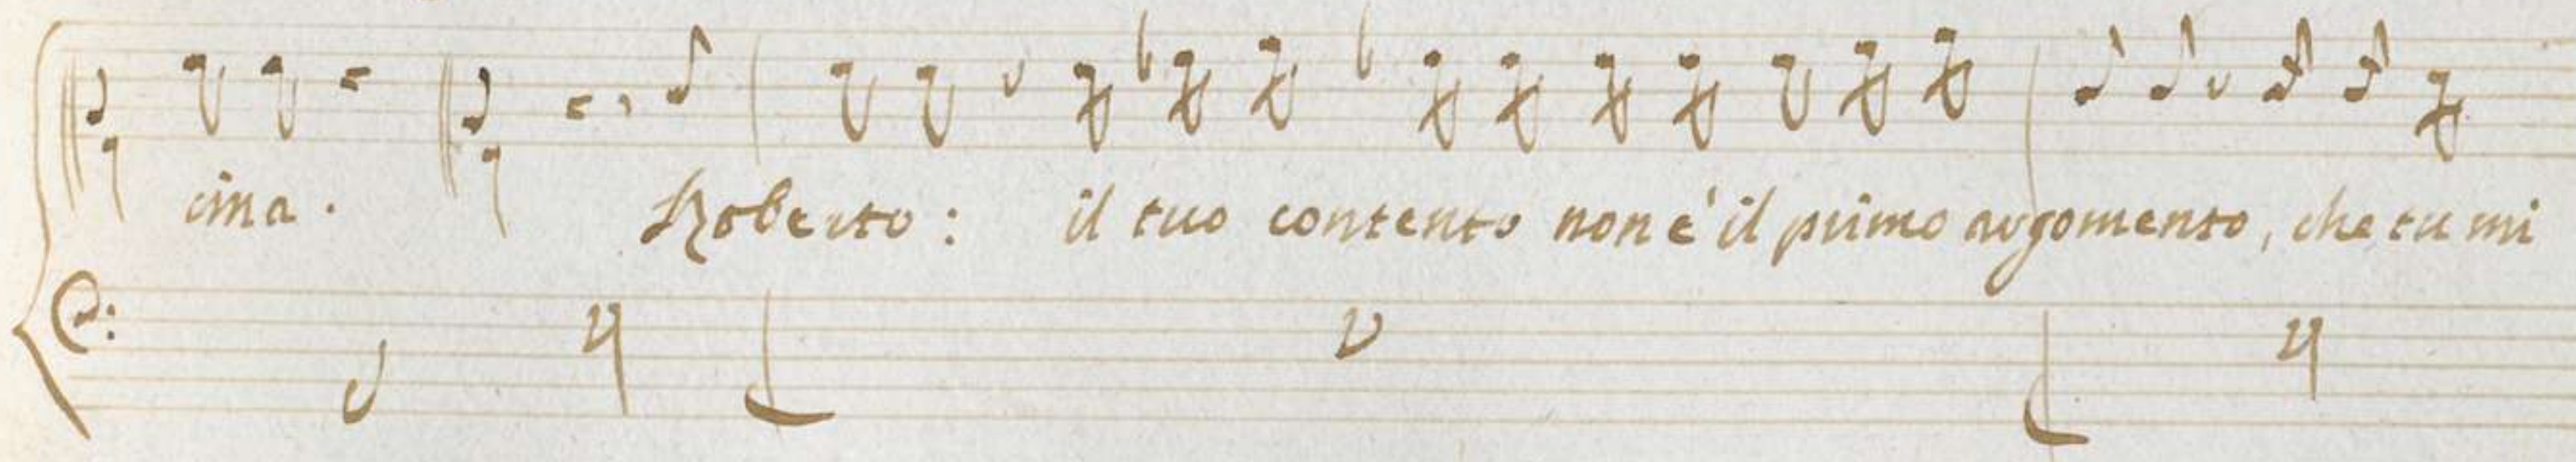 cina. Roberto: il tuo contento non è il primo argomento, che tu mi